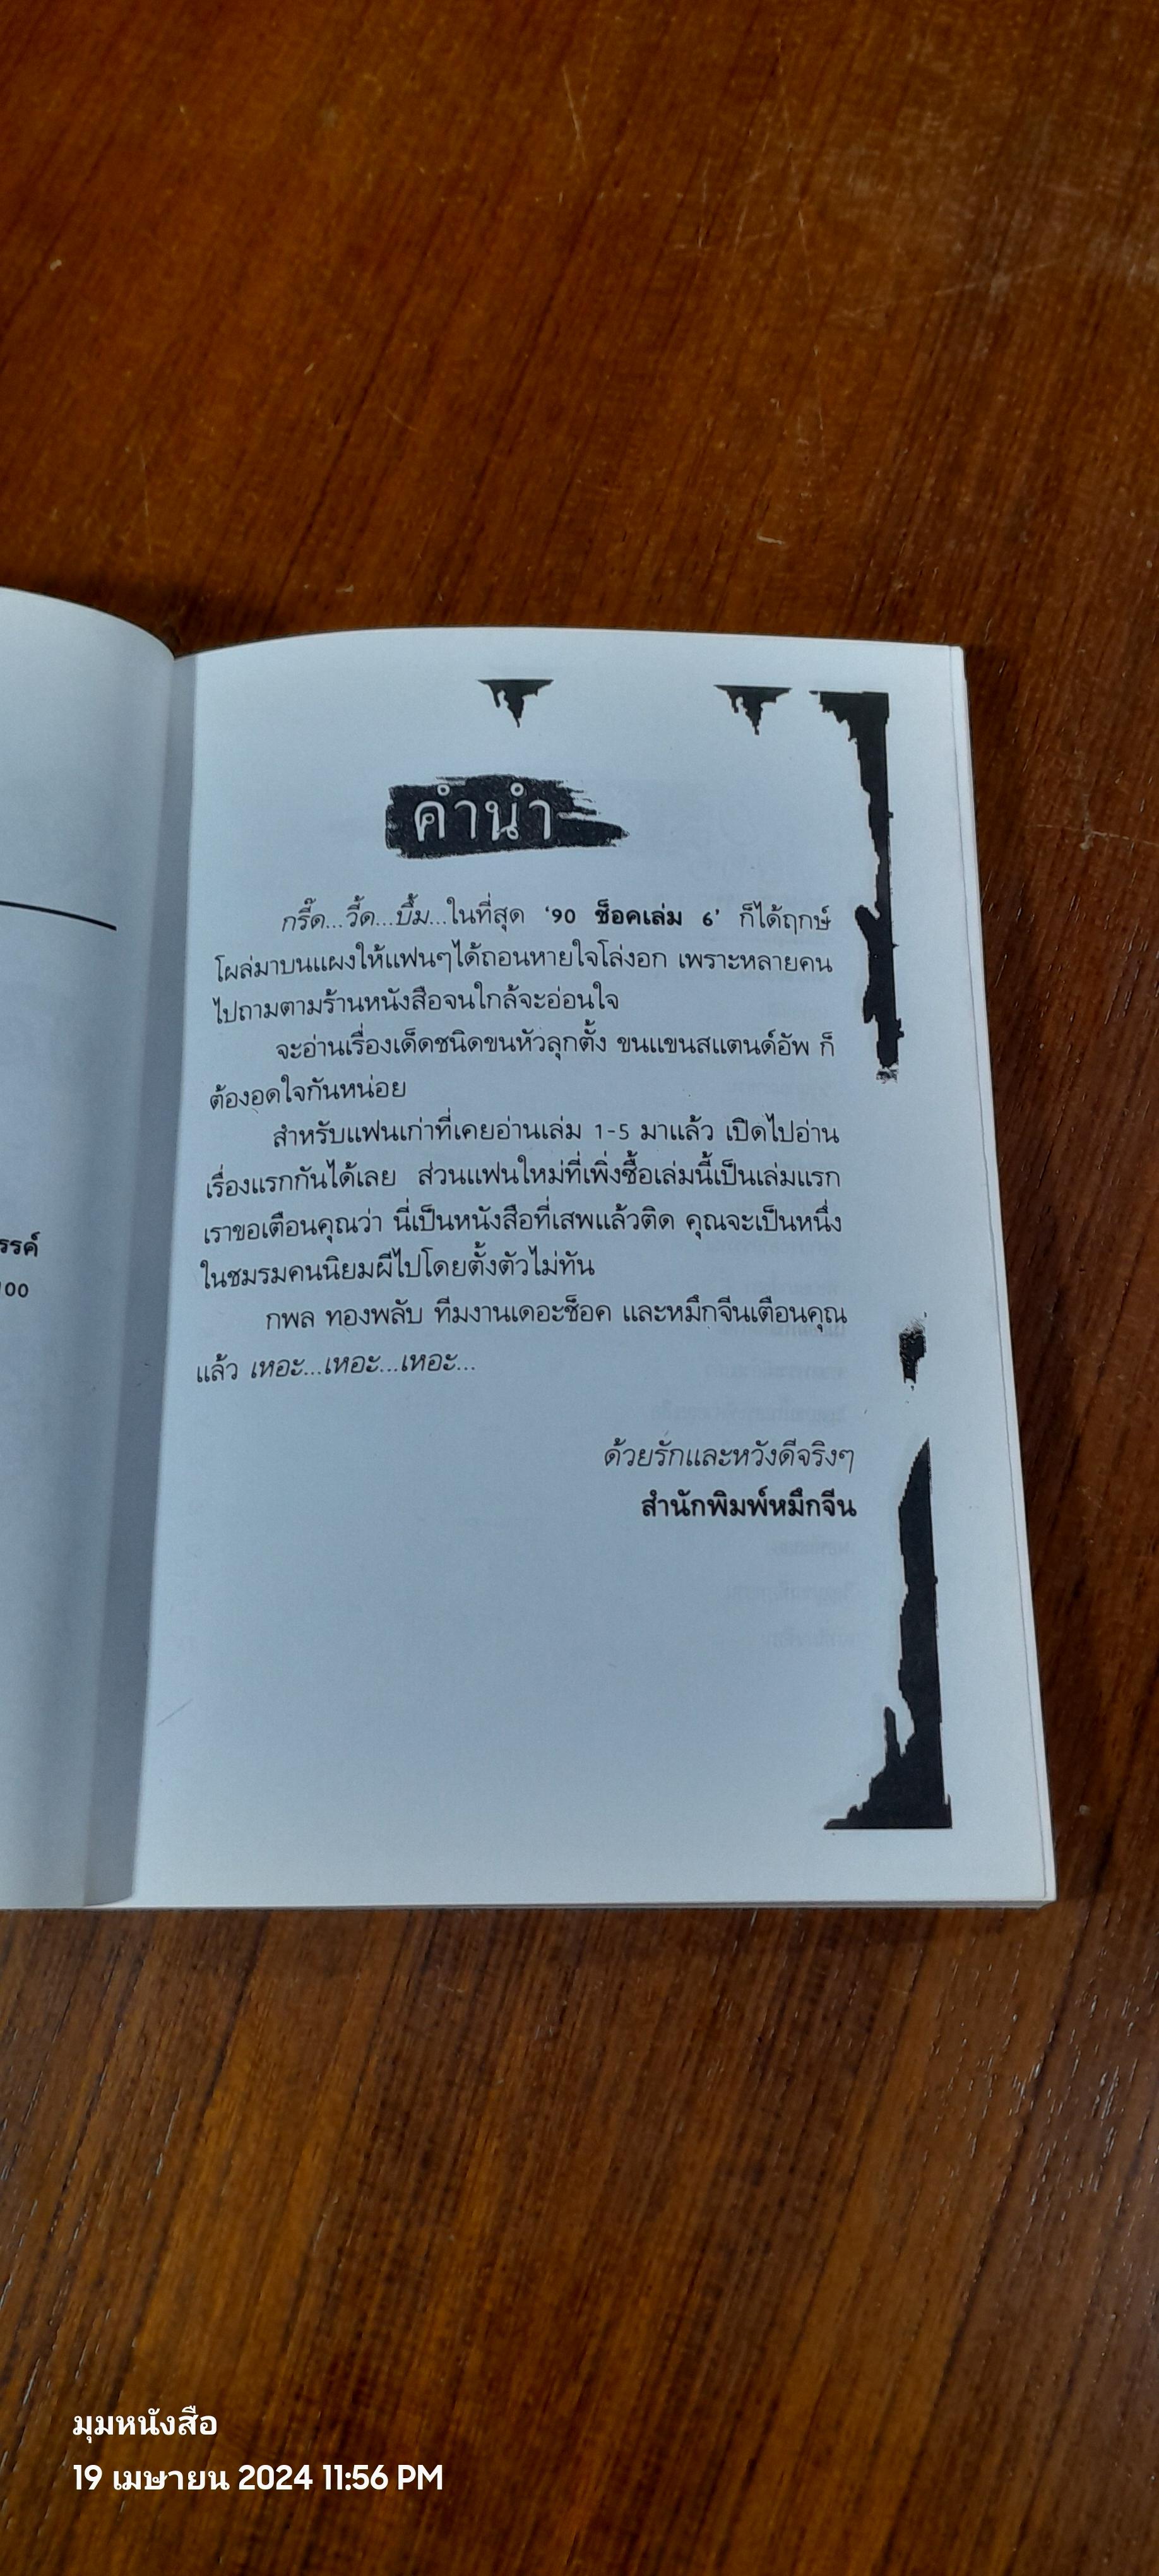 รรค์
100
คำนำ
กรี๊ด...วี้ด...บึ้ม...ในที่สุด '90 ช็อคเล่ม 6' ก็ได้ฤกษ์
โผล่มาบนแผงให้แฟนๆได้ถอนหายใจโล่งอก เพราะหลายคน
ไปถามตามร้านหนังสือจนใกล้จะอ่อนใจ
จะอ่านเรื่องเด็ดชนิดขนหัวลุกตั้ง ขนแขนสแตนด์อัพ ก็
ต้องอดใจกันหน่อย
สำหรับแฟนเก่าที่เคยอ่านเล่ม 1-5 มาแล้ว เปิดไปอ่าน
เรื่องแรกกันได้เลย ส่วนแฟนใหม่ที่เพิ่งซื้อเล่มนี้เป็นเล่มแรก
เราขอเตือนคุณว่า นี่เป็นหนังสือที่เสพแล้วติด คุณจะเป็นหนึ่ง
ในชมรมคนนิยมผีไปโดยตั้งตัวไม่ทัน
กพล ทองพลับ ทีมงานเดอะช็อค และหมึกจีนเตือนคุณ
แล้ว เหอะ...เหอะ...เหอะ...
ด้วยรักและหวังดีจริงๆ
สำนักพิมพ์หมึกจีน
มุมหนังสือ
19 เมษายน 2024 11:56 PM